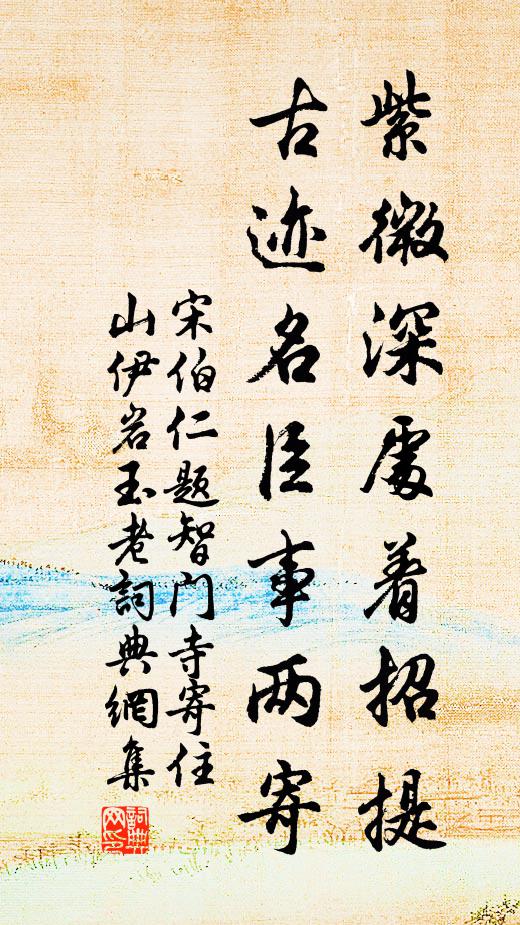 紫微深處着招提
古迹名臣事两寄
宋伯仁题智门寺寄住
山伊岩玉老詞典網集
詞典网印